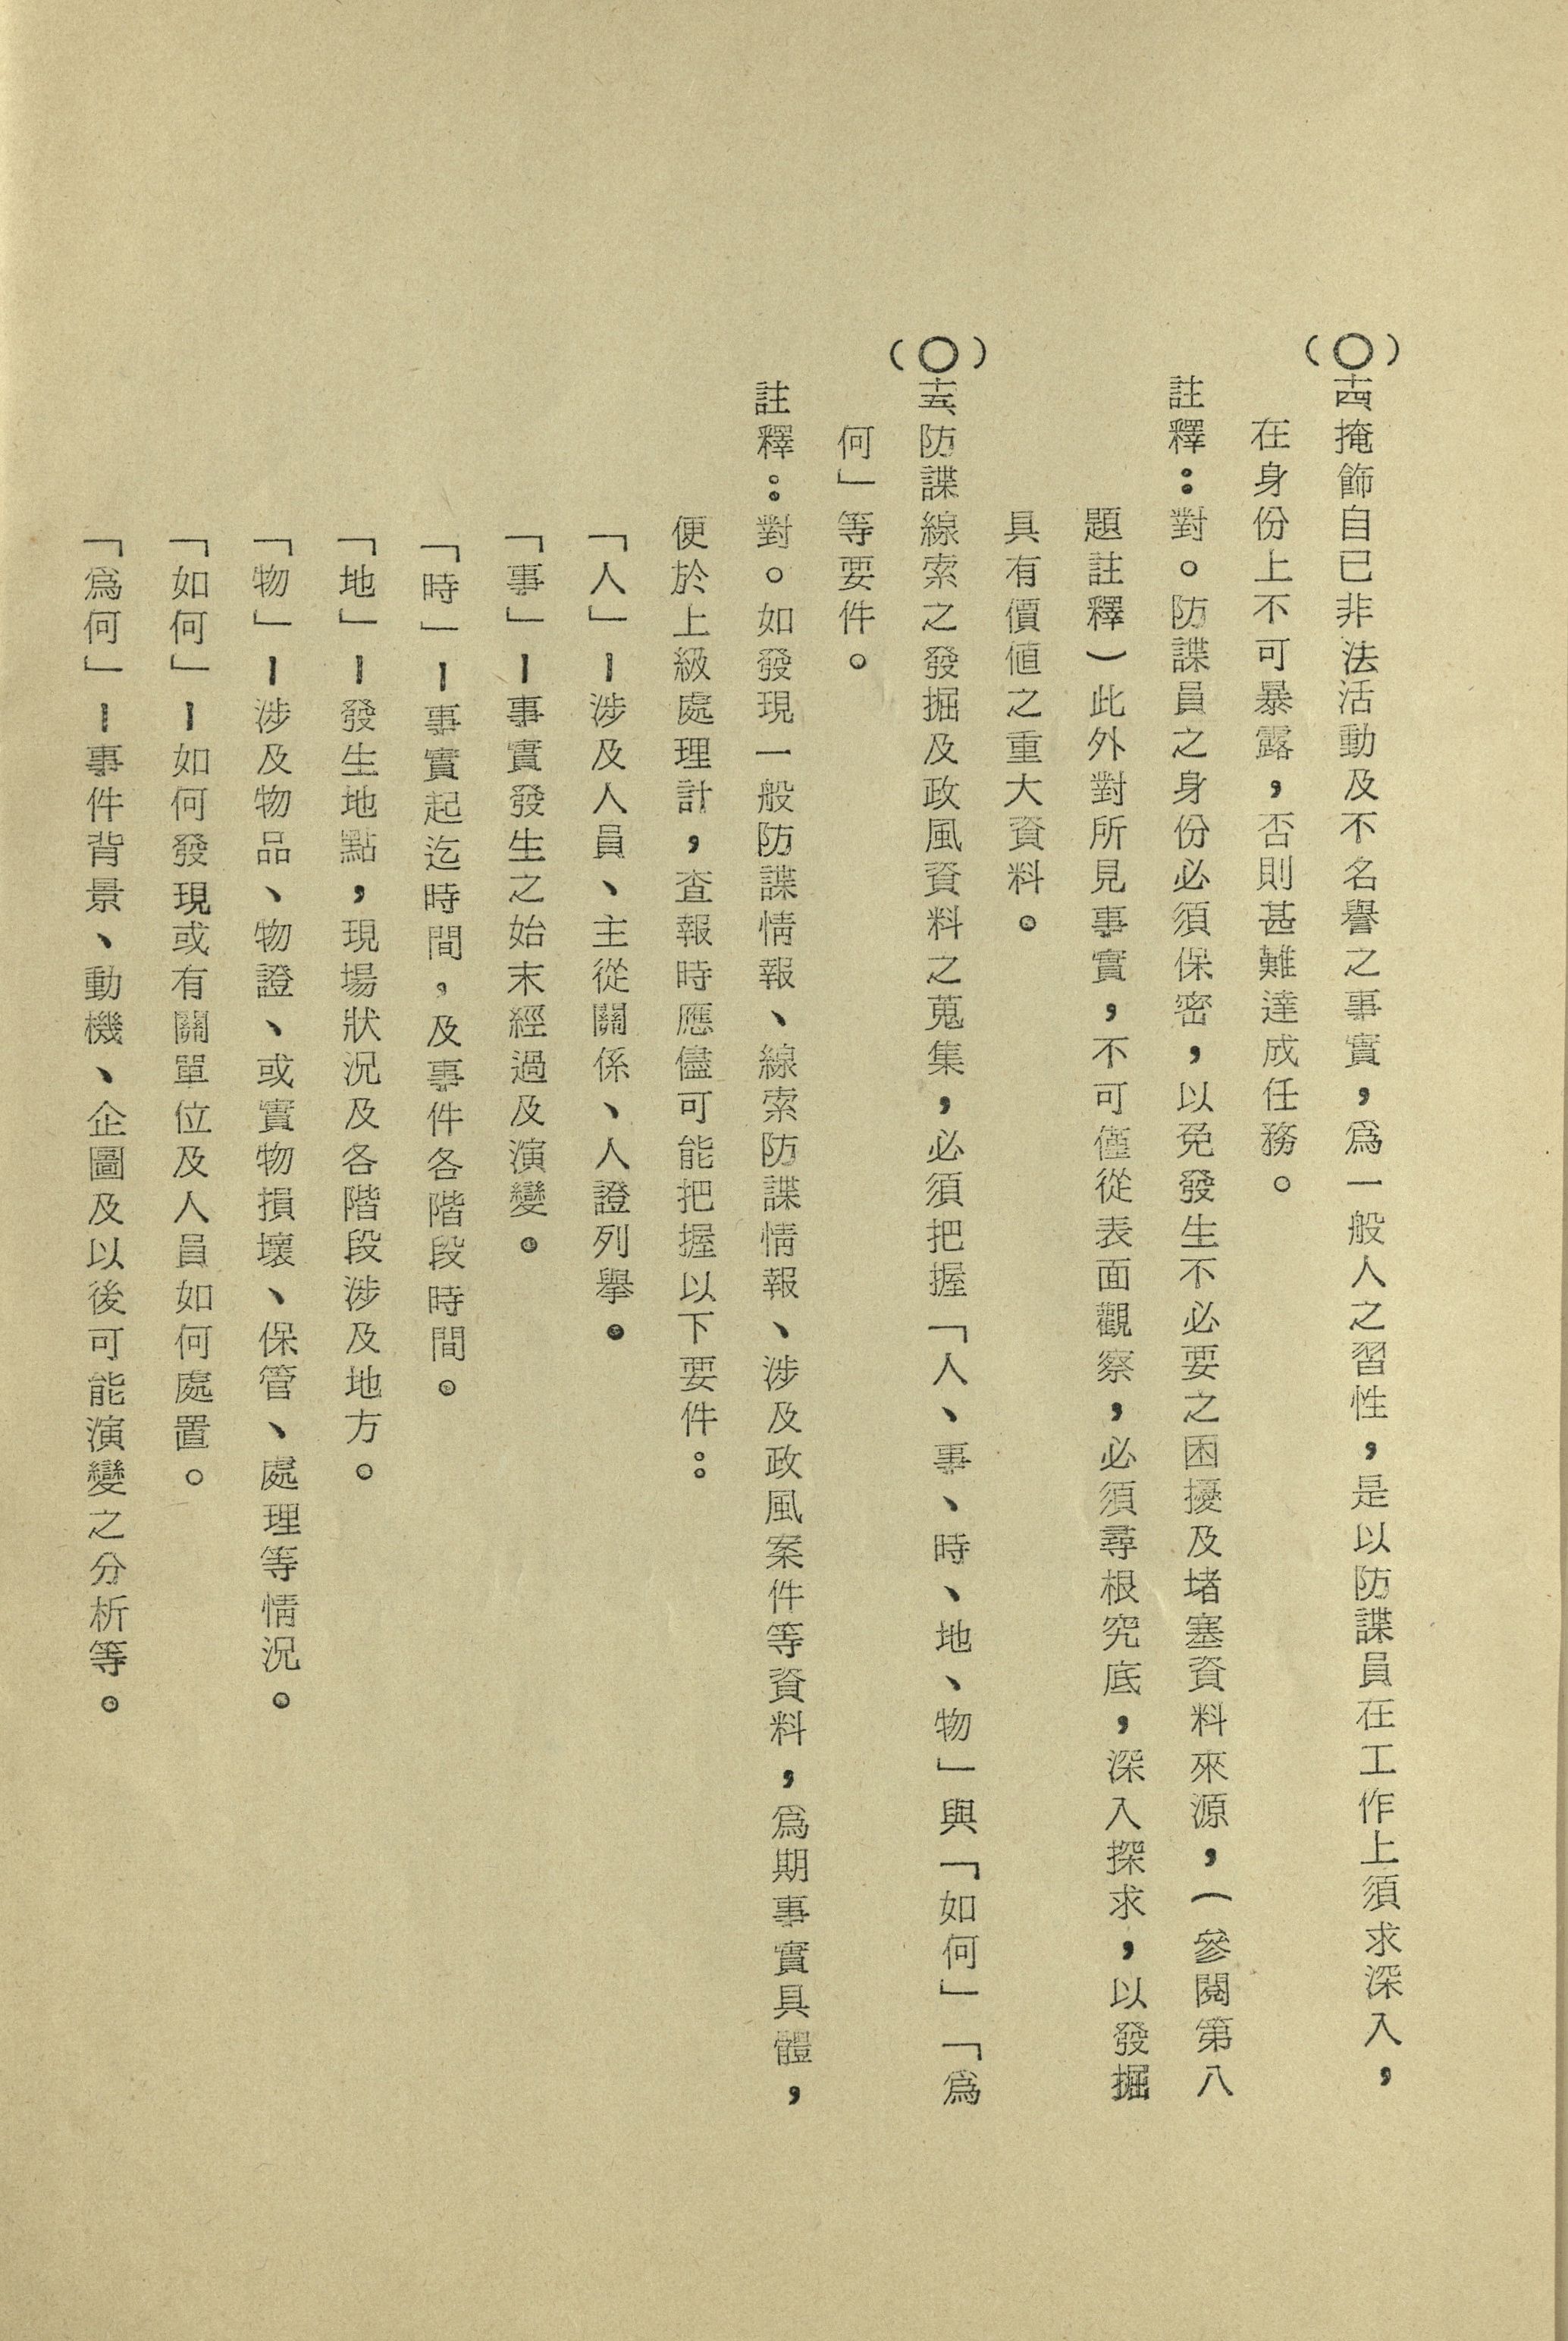 （○）十四、掩飾自已非法活動及不名譽之事實，爲一般人之習性，是以防諜員在工作上須求深入，
在身份上不可暴露，否則甚難達成任務。
註釋：對。防諜員之身份必須保密，以免發生不必要之困擾及堵塞資料來源，（參閱第八
題註釋）此外對所見事實，不可僅從表面觀察，必須尋根究底，深入探求，以發掘
具有價值之重大資料。
（○）十五、防諜線索之發掘及政風資料之蒐集，必須把握「人、事、時、地、物」與「如何」「爲
何」等要件。
註釋：對。如發現一般防諜情報、線索防諜情報、涉及政風案件等資料，爲期事實具體，
便於上級處理計，查報時應儘可能把握以下要件：
「人」—涉及人員、主從關係、人證列舉。
「事」—事實發生之始末經過及演變。
「時」—事實起迄時間，及事件各階段時間。
「地」—發生地點，現場狀況及各階段涉及地方。
「物」—涉及物品、物證、或實物損壞、保管、處理等情況。
「如何」—如何發現或有關單位及人員如何處置。
「爲何」—事件背景、動機、企圖及以後可能演變之分析等。